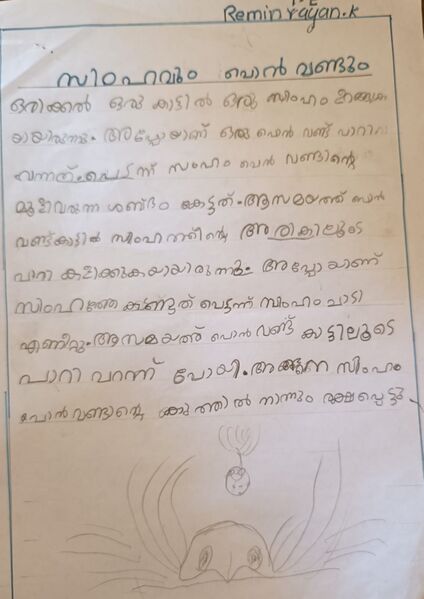 Remin rayan.k
സിംഹവും പൊൻ വണ്ടും
ഒരിക്കൽ ഒരു കാട്ടിൽ ഒരു സിംഹം ഉറങ്ങുക
യായിരുന്നു. അപ്പോയാണ് ഒരു പെൻ വണ്ട് പാറി
വന്നത്. പെട്ടന്ന് സംഹം പെൻ വണ്ടിന്റെ
മൂളിവരുന്ന ശബ്ദം കേട്ടത്. ആസമയത്ത്
വണ്ട് കാട്ടിൽ സിംഹത്തിന്റെ അരികിലൂടെ
പാറി കളിക്കുകയായിരുന്നു. അപ്പോയാണ്
സിംഹത്തേ കണ്ടത് പെട്ടന്ന് സിംഹം ചാടി
എണീറ്റു. ആസമയത്ത് പൊൻ വണ്ട് കാട്ടിലൂടെ
പാറി പറന്ന് പോയി. അങ്ങനെ സിംഹം
പോൻ വണ്ടിന്റെ കുത്തിൽ നിന്നും രക്ഷപ്പെട്ടു